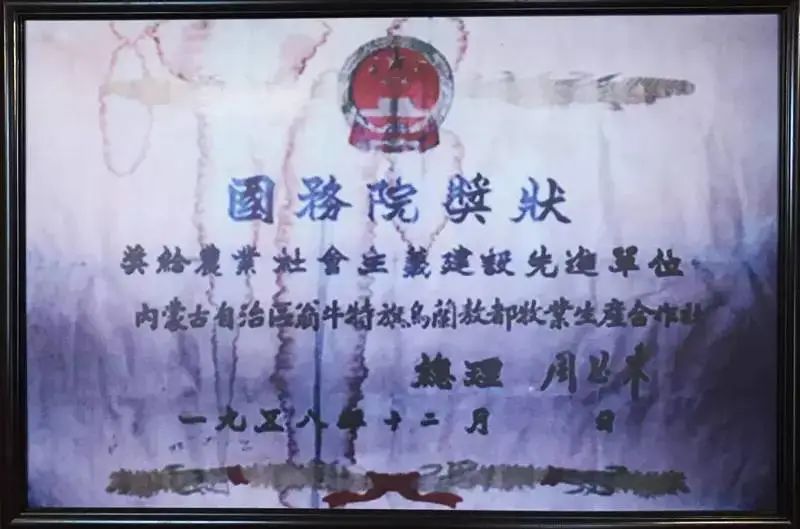 國務院獎狀
奖給農業社會主義建設先進單位
內蒙古自治區翁牛特旗烏蘭敖都牧業生產合作社
總理 周恩来
一九五八年十二月 日